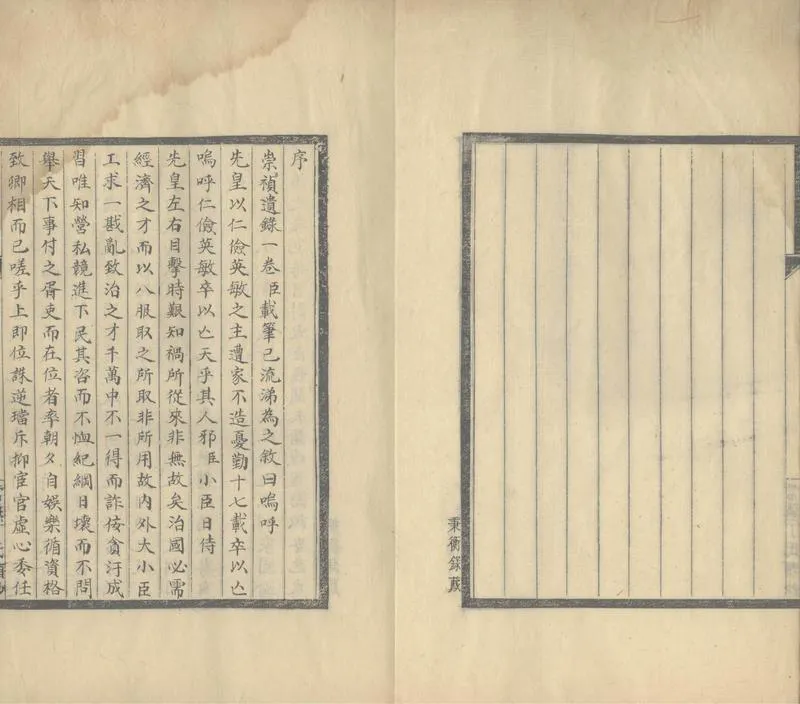 秉衡錄藏
序
崇禎遺錄一卷臣載筆已流涕為之敘曰嗚呼
先皇以仁儉英敏之主遭家不造憂勤十七載卒以亾
嗚呼仁儉英敏卒以亾天乎其人邪臣小臣日侍
先皇左右目擊時艱知禍所從來非無故矣治國必需
經濟之才而以八股取之所取非所用故内外大小臣
工求一戡亂致治之才千萬中不一得而詐佞貪汙成
習唯知營私競進下民其咨而不恤紀綱日壞而不問
舉天下事付之胥吏而在位者率朝夕自娛樂循資格
致卿相而已嗟乎上即位誅逆璫斥抑宦官虛心委任